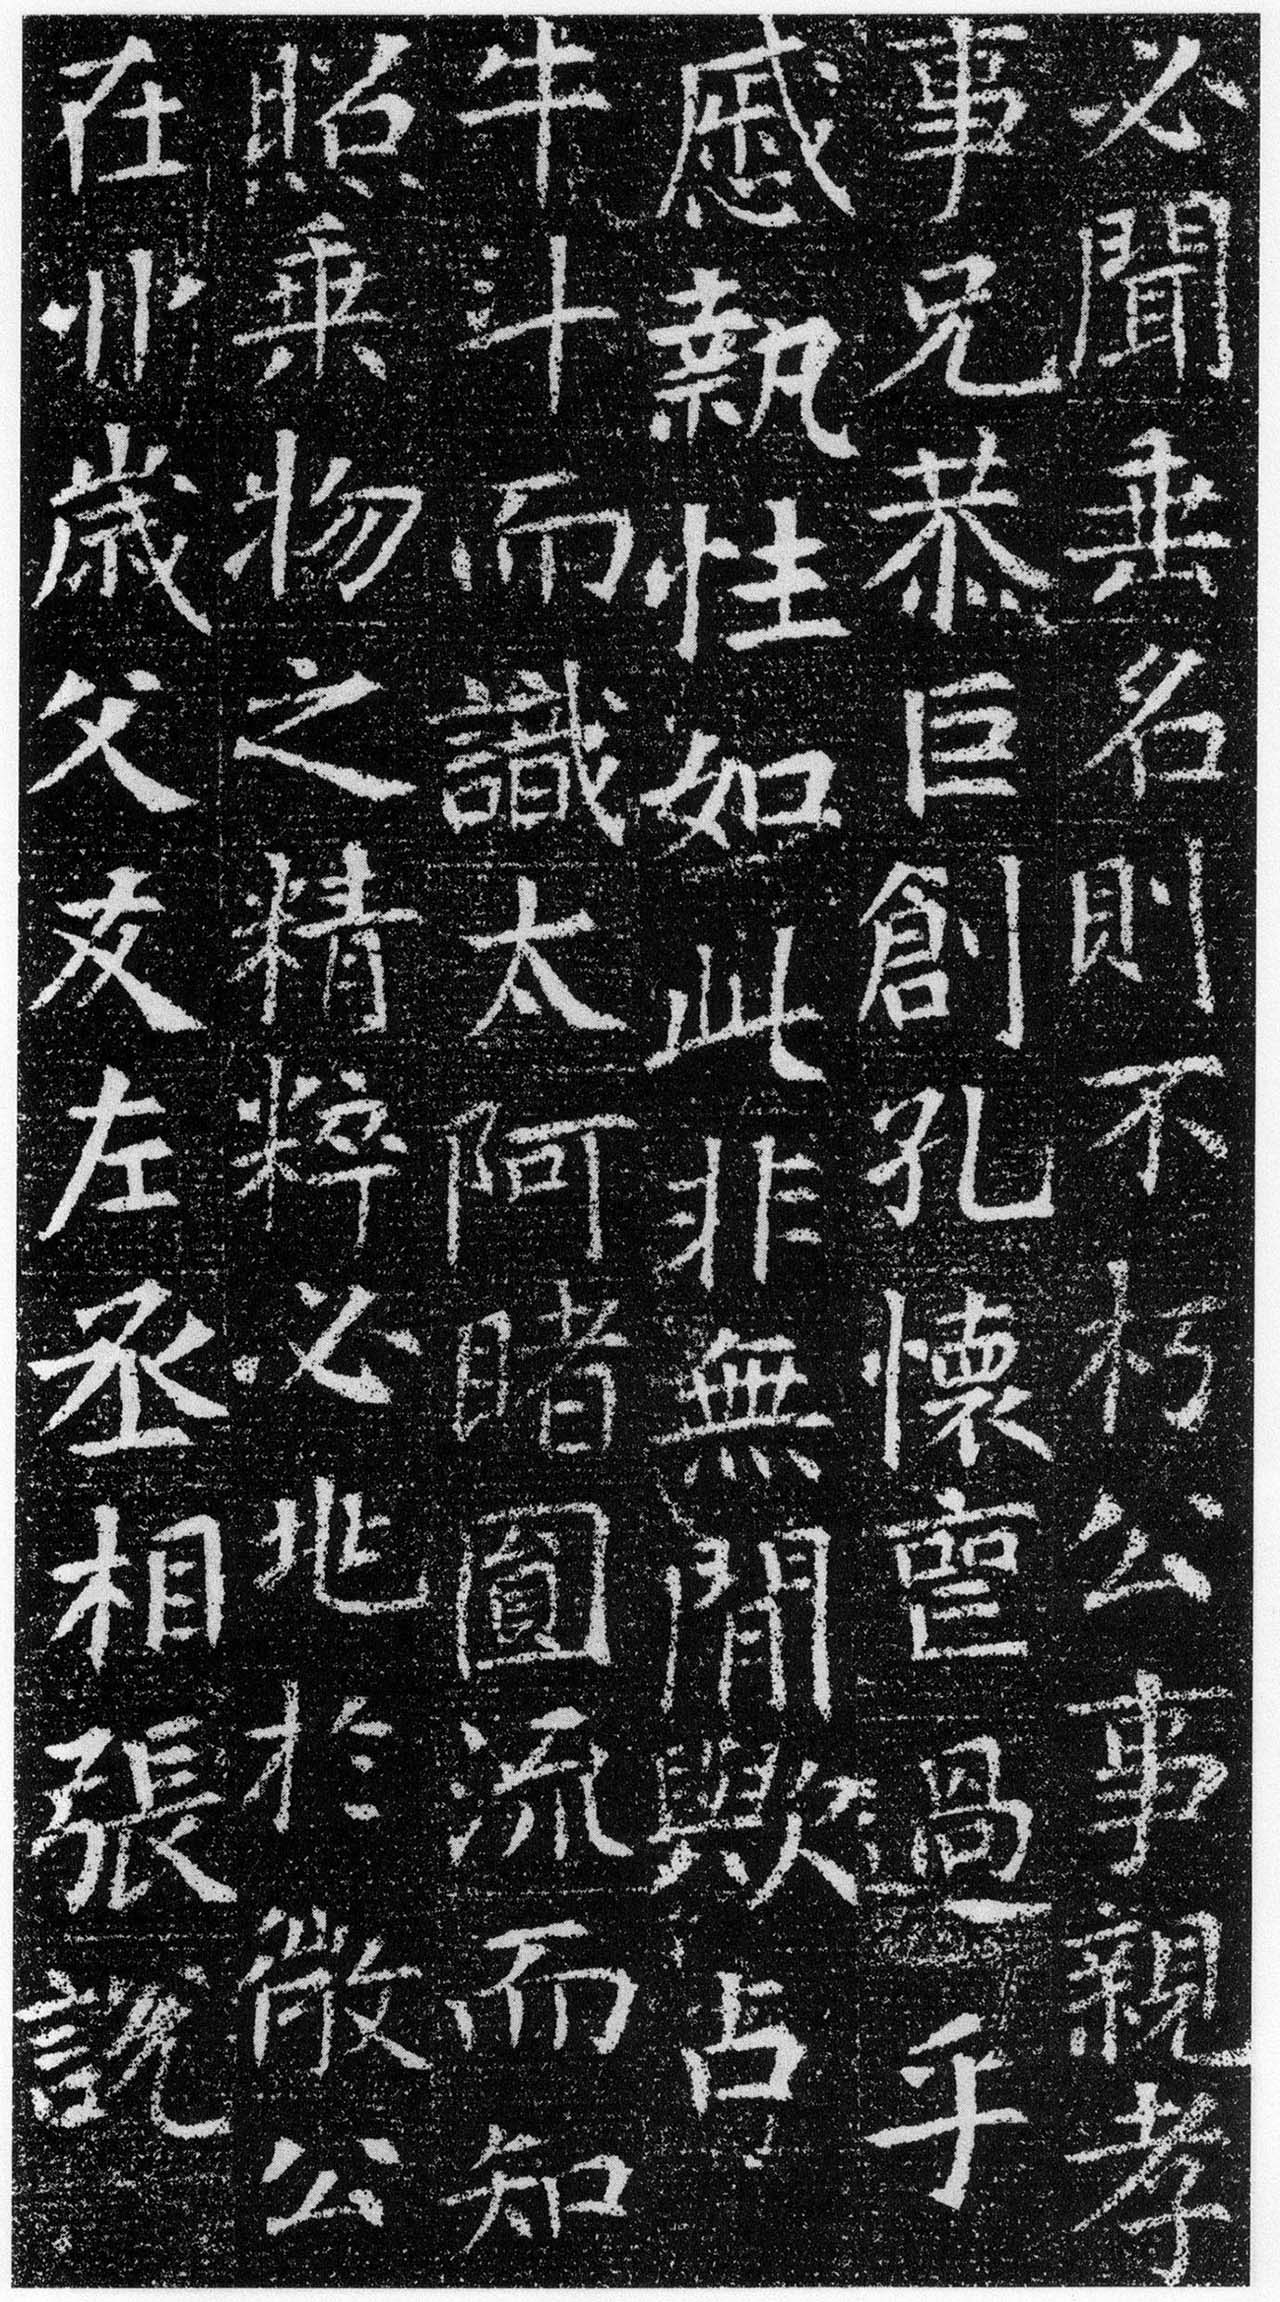 必聞垂名則不朽公事親孝
事兄恭巨創孔懷亶過乎
慼執性如此非無閒歟占
牛斗而識太阿睹圓流而知
照乗物之精粹必兆於微公
在丱歲父友左丞相張說